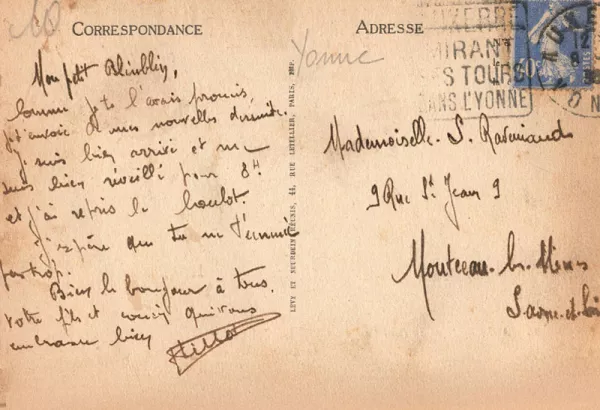 CORRESPONDANCE
ADRESSE
Yonne
AUXERRE
MIRANT
S TOURS
DANS L'YONNE
Mon petit
comme je te l'avais promis,
je t'envoie de mes nouvelles de suite.
Je suis bien arrivé et me
suis bien réveillé pour 8H
et j'ai repris le boulot.
J'espère que tu ne t'ennuie
pas trop.
Bien le bonjour à tous.
votre fils et qui vous
embrasse bien
LEVY ET NEURDEIN RÉUNIS, 44, RUE LETELLIER, PARIS, IMP.
Mademoiselle S.
9 Rue St Jean 9
Montceau-les-Mines
Saone-et-Loire